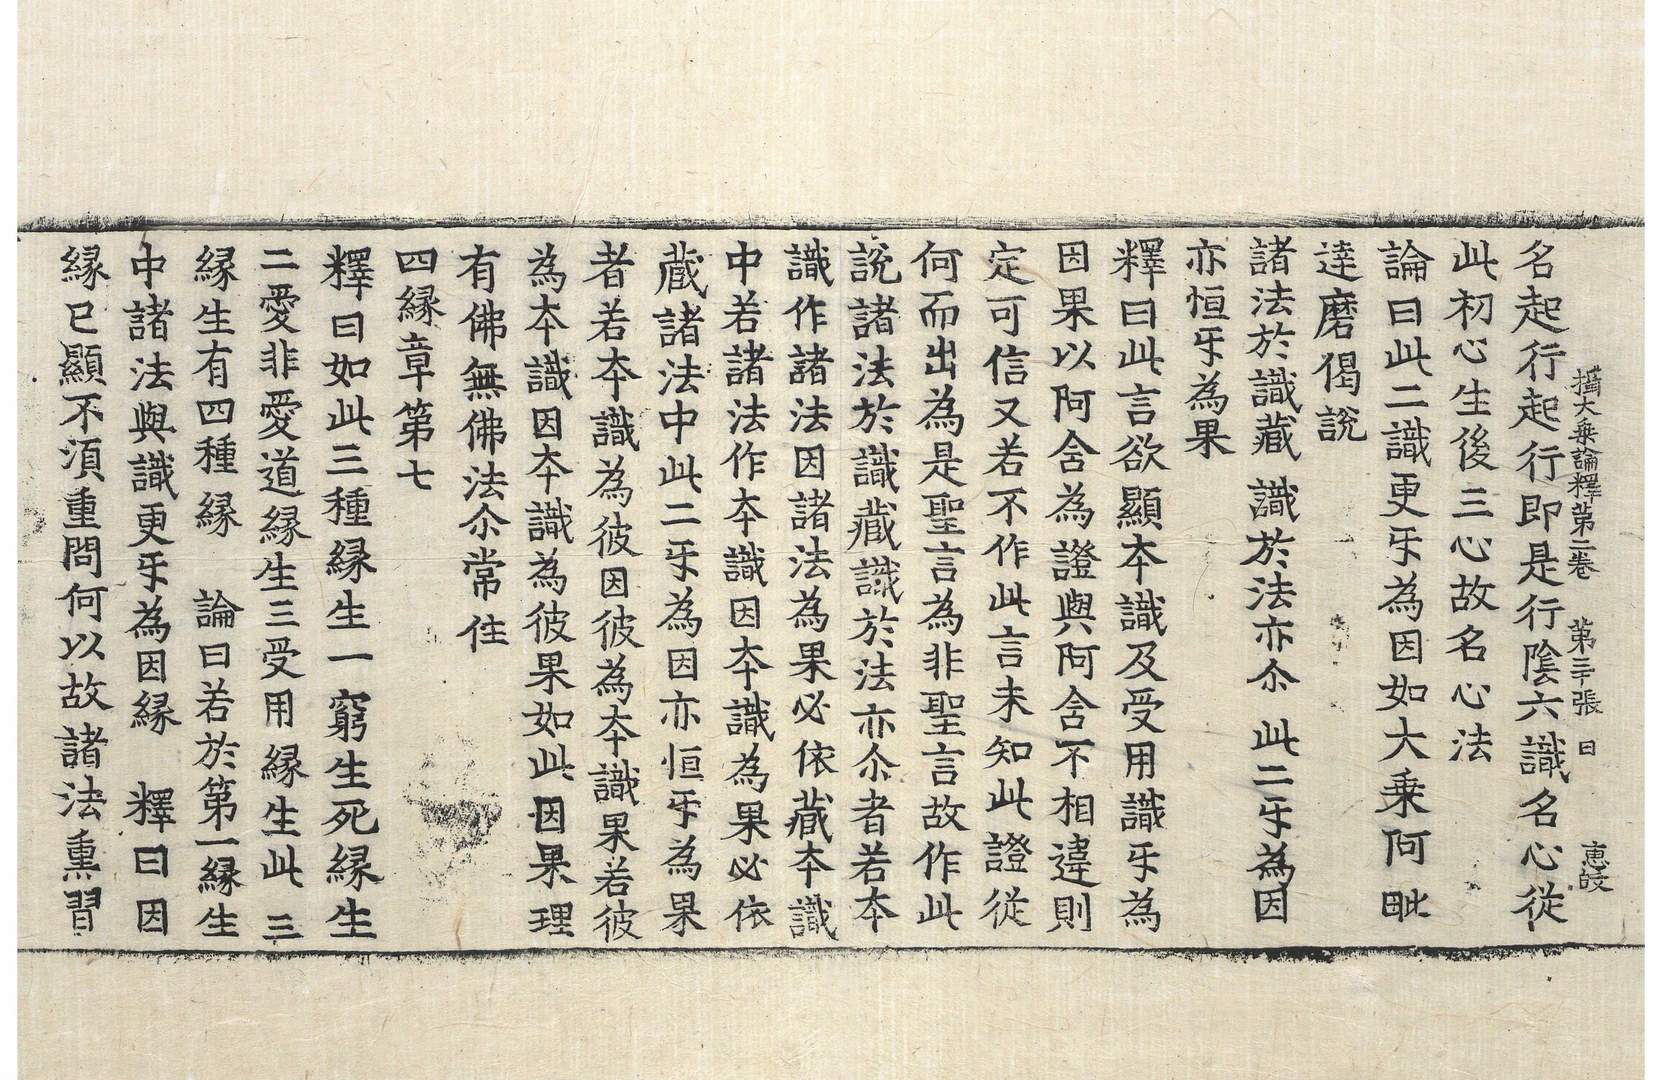 攝大乘論釋第二卷 第三十張 日 惠皎
名起行起行即是行陰六識名心從
此初心生後三心故名心法
論曰此二識更㸦為因如大乗阿毗
達磨偈說
諸法於識蔵 識於法亦尒 此二㸦為因
亦恒㸦為果
釋曰此言欲顯夲識及受用識㸦為
因果以阿含為證與阿含不相違則
定可信又若不作此言未知此證從
何而出為是聖言為非聖言故作此
說諸法於識蔵識於法亦尒者若夲
識作諸法因諸法為果必依蔵夲識
中若諸法作夲識因夲識為果必依
蔵諸法中此二㸦為因亦恒㸦為果
者若夲識為彼因彼為夲識果若彼
為夲識因夲識為彼果如此因果理
有佛無佛法尒常住
四縁章第七
釋曰如此三種縁生一窮生死縁生
二愛非愛道縁生三受用縁生此三
縁生有四種縁 論曰若於第一縁生
中諸法與識更㸦為因縁 釋曰因
縁已顯不湏重問何以故諸法熏習